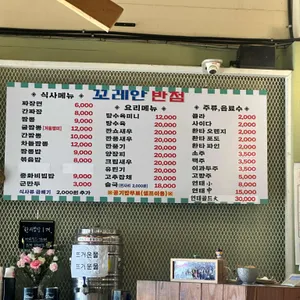 꼬레안 반점
※ 식사메뉴 ※
짜장면 6,000
간짜장 8,000
짬뽕 9,000
굴짬뽕 10,000
간짬뽕 10,000
차돌짬뽕 12,000
짬뽕밥 9,000
볶음밥 8,000
중화비빔밥 9,000
군만두 3,000
식사류 곱빼기 2,000원 추가
※ 요리메뉴 ※
탕수육미니 12,000
탕수육 20,000
깐쇼새우 20,000
깐풍새우 20,000
깐풍기 20,000
양장피 20,000
크림새우 20,000
유린기 20,000
고추잡채 20,000
술국 18,000
※공기밥무료(셀프이용)※
※ 주류,음료수 ※
콜라 2,000
사이다 2,000
환타 오렌지 2,000
환타 포도 2,000
환타 파인 2,000
소주
맥주
이과두주
고량주 5,000
연태 小
연태 中
연태골드 大 30,000
뜨거운물
뜨거운물